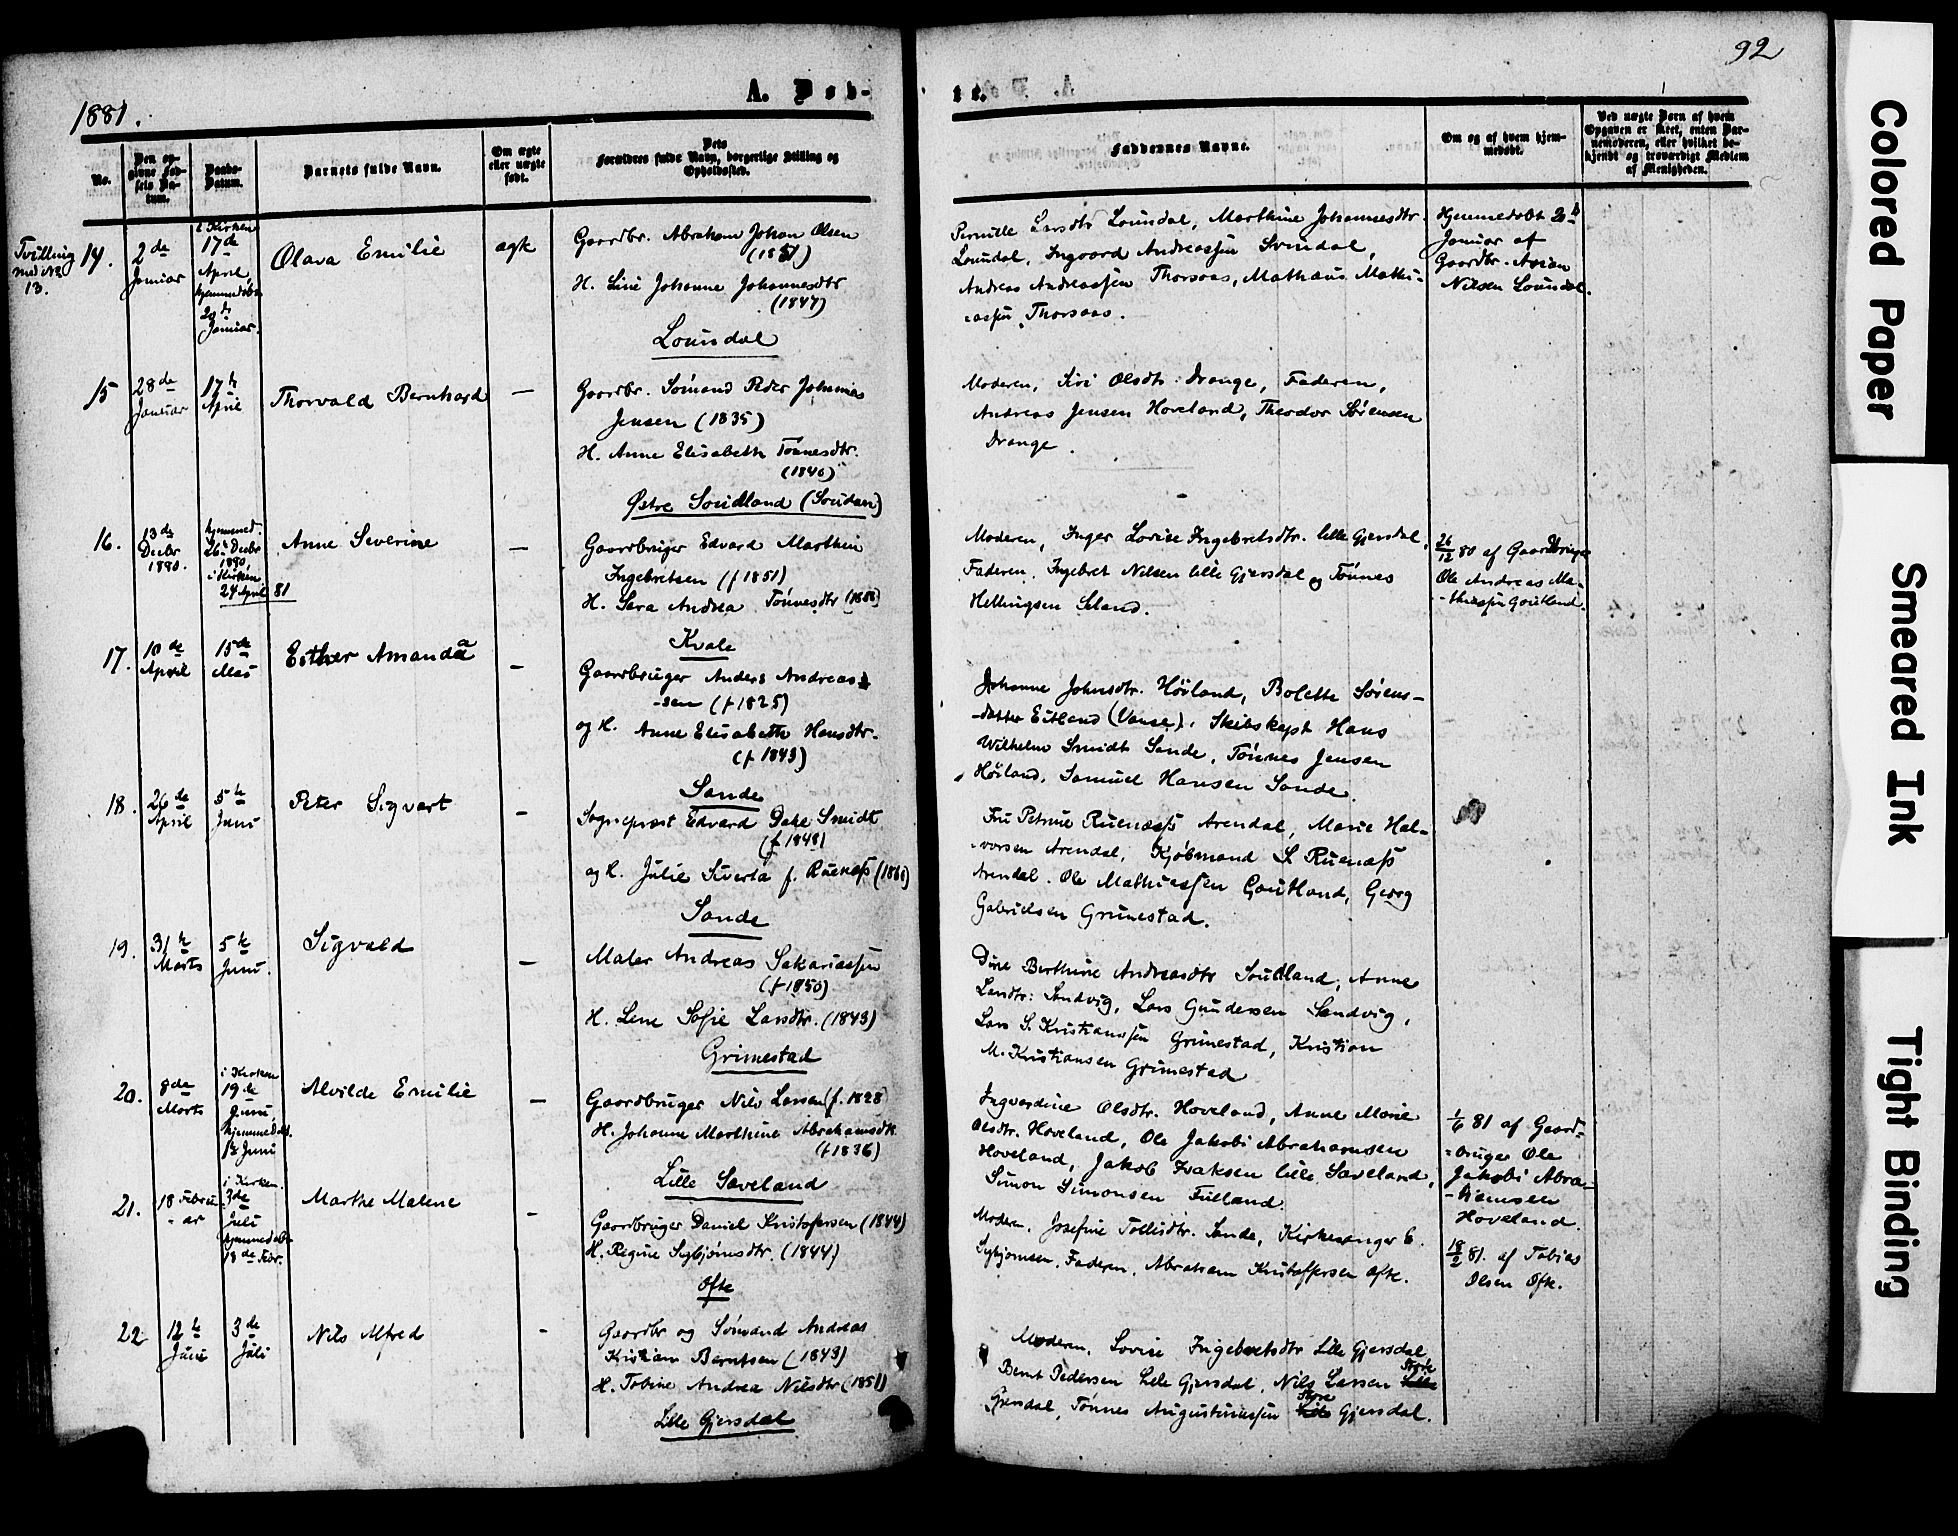 92
1881.
A. Fød-
te.
No.
Den op-
givne Fød-
sels Da-
tum.
Daabs-
Datum.
Barnets fulde Navn.
Om ægte
eller uægte
født.
Dets
Forældres fulde Navn, borgerlige Stilling og
Opholdssted.
Faddernes Navne.
Om og af hvem hjem-
medøbt.
Ved uægte Børn af hvem
Opgaven er skeet, enten Bar-
nemoderen, eller hvilket be-
kjendt og troværdigt Medlem
af Menigheden.
Tvilling
med No
13.
14.
2de
Januar
i Kirken
17de
April,
hjemmedøbt
20de
Januar.
Olava Emilie
ægte
Gaardbr. Abraham Johan Olsen
(1851)
H. Line Johanne Johannesdtr
(1847)
Loundal
Pernille Larsdtr Loundal, Marthine Johannesdtr.
Loundal, Ingvord Andreassen Svindal,
Andreas Andreassen Thorsaas, Mathæus Mathi-
-assen Thorsaas.
Hjemmedøbt 20de
Januar af
Gaardbr. Asian
Nilsen Loundal.
15
28de
Januar
17de
April
Thorvald Bernhard
—
Gaardbr. Sømand Peder Johannes
Jensen (1835)
H. Anne Elisabeth Tønnesdtr.
(1840)
Østre Soudland (Soudan)
Moderen, Siri Olsdtr. Drange, Faderen,
Andreas Jensen Hoveland, Theodor Sørensen
Drange.
16.
13de
Decbr
1880.
hjemmed.
26de Decbr
1880,
i Kirken
24 April 81
Anne Severine
—
Gaardbruger Edvard Marthin
Ingebretsen (f 1851)
H. Sara Andrea Tønnesdtr
Kvale
Moderen, Inger Lovise Ingebretsdtr. lille Gjersdal,
Faderen, Ingebret Nilsen lille Gjersdal og Tønnes
Helleugsen Seland.
26/12 80 af Gaardbruger
Ole Andreas Ma-
-thiassen Goutland.
17.
10de
April
15de
Mai
Esther Amanda
—
Gaardbruger Anders Andreas-
-sen (f 1825)
og H. Anne Elisabeth Hansdtr.
(f 1843)
Sande
Johanne Johnsdtr. Høiland, Bolette Sørens-
-datter Eitland (Vanse), Skibskapt Hans
Wilhelm Smidt Sande, Tønnes Jensen
Høiland, Samuel Hansen Sande.
18.
26de
April
5te
Juni
Peter Sigvart
—
Sognepræst Edvard Dahl Smidt
(f 1848)
og H. Julie Siverta f. Ruenæss
Sande
Fru Petrine Ruenæss Arendal, Marie Hal-
-vorsen Arendal, Kjøbmand S. Ruenæss
Arendal. Ole Mathiassen Goutland, Georg
Gabrielsen Grimestad.
19.
31te
Marts
5te
Juni.
Sigvald
—
Maler Andreas Sakariassen
(f 1850)
H. Lene Sofie Larsdtr. (1843)
Grimestad
Dine Berthine Andreasdtr Soudland, Anne
Larsdtr: Sandvig, Lars Gundersen Sandvig,
Lars S. Kristianssen Grimestad, Kristian
M. Kristiansen Grimestad
20.
8de
Marts
i Kirken
19de
Juni,
hjemmedøbt.
1te Juni
Alvilde Emilie
—
Gaardbruger Nils Larsen (f. 1828
H. Johanne Marthine Abrahamsdtr.
(f 1836)
Lille Saveland
Ingvardine Olsdtr. Hoveland, Anne Marie
Olsdtr. Hoveland, Ole Jakobi Abrahamsen
Hoveland, Jakob Isaksen lille Saveland,
Simon Simonsen Fulland.
1/6 81 af Gaard-
-bruger Ole
Jakobi Abra-
-hamsen
Hoveland.
21.
18 Febru-
-ar
i Kirken.
3de
Juli
hjemmedøbt
18de Febr.
Marthe Malene
—
Gaardbruger Daniel Kristofersen (1844)
H. Regine Sigbjørnsdtr. (1844)
Ofte
Moderen, Josefine Tollisdtr. Sande, Kirkesanger E.
Sigbjørnsen, Faderen, Abraham Kristoffersen Ofte.
18/2 81. af Tobias
Olsen Ofte.
22
12te
Juni
3de
Juli
Nils Alfred
—
Gaardbr og Sømand Andreas
Kristian Berntsen (1843)
H. Tobine Andrea Nilsdtr (1851)
Lille Gjersdal
Moderen, Lovise Ingebretsdtr Lille Gjersdal
Bernt Pedersen Lille Gjersdal, Nils Larsen Store
Gjersdal, Tønnes Augustinussen Store Gjersdal.
Colored Paper
Smeared Ink
Tight Binding